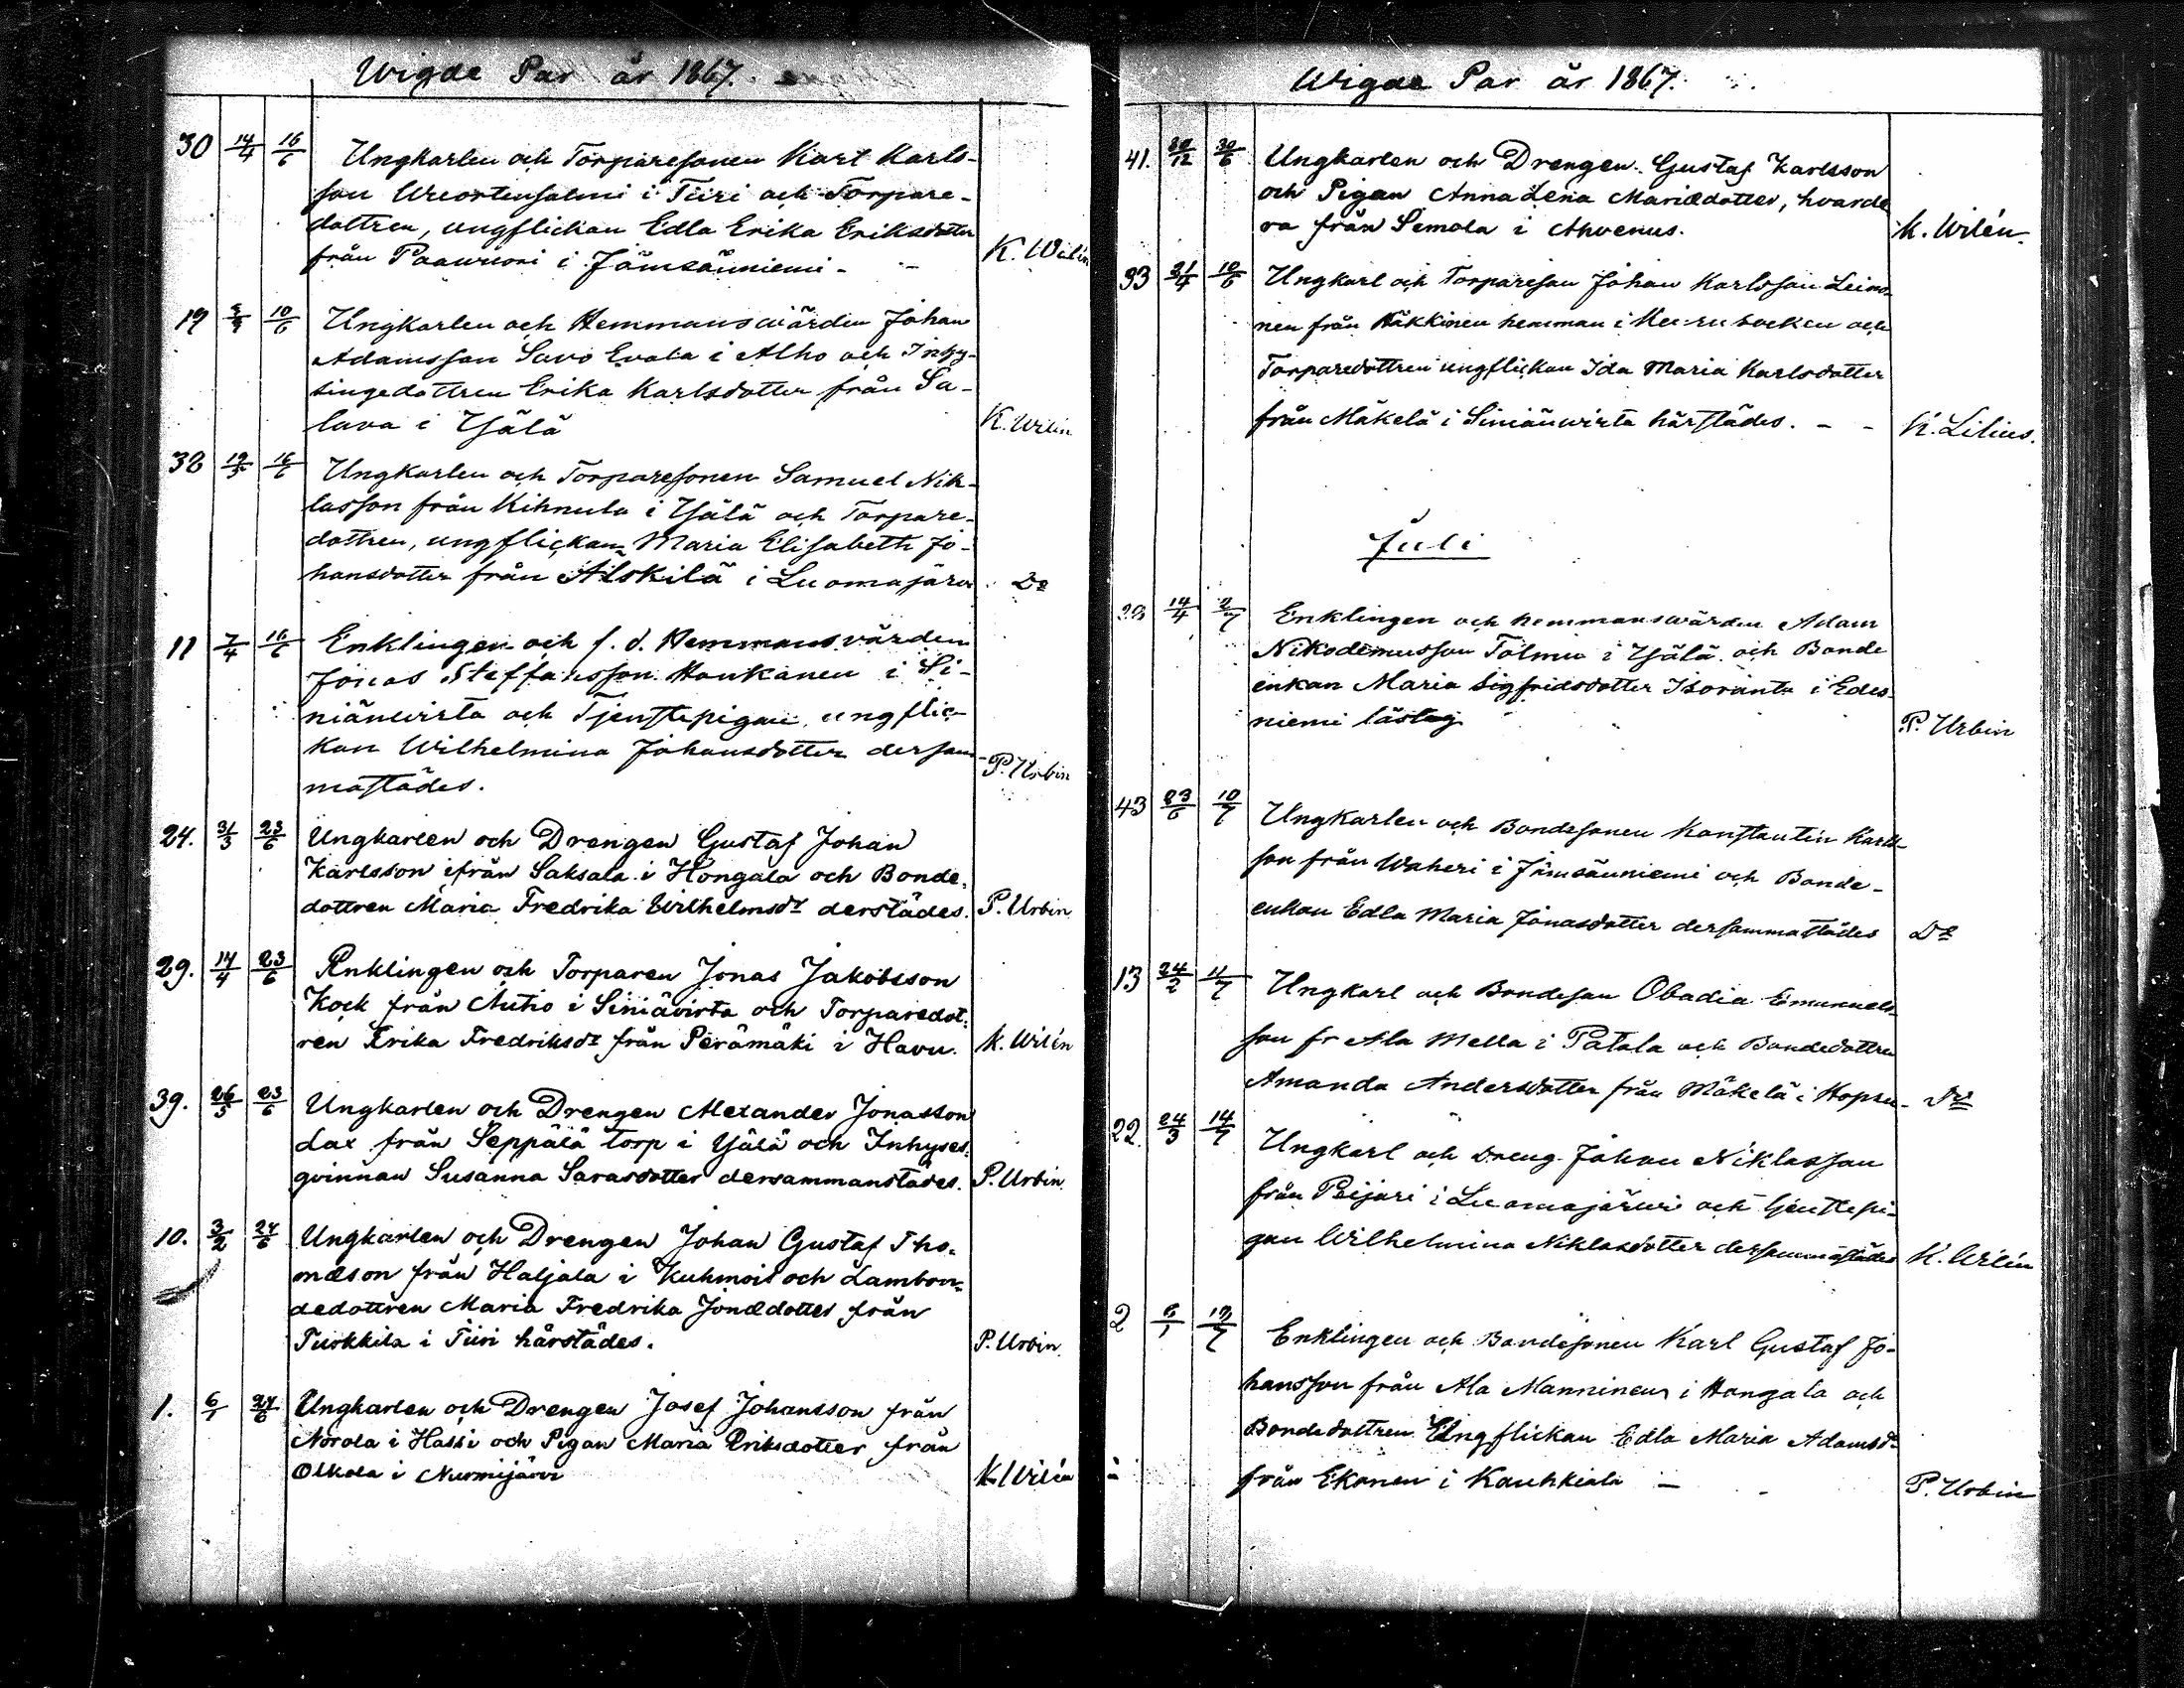 Wigde Par år 1867.
30 14/4 16/6 Ungkarlen och Torparesonen Karl Karls-
son Wuortensalmi i Tiiri och Torpare-
dottren, ungflickan Edla Erika Eriksdotter
från Paawuori i Jämsänniemi - K. Wilén
19 10/6 Ungkarlen och Hemmanswärden Johan
Adamsson Savo Evala i Alho och Inhy-
singedottren Erika Karlsdotter från Sa-
lava i Yjälä K. Wilén
38 19/5 16/6 Ungkarlen och Torparesonen Samuel Nik-
lasson från Kihnula i Yjälä och Torpare-
dottren, ungflickan Maria Elisabeth Jo-
hansdotter från Alskilä i Luomajärvi Do
11 7/4 16/6 Enklingen och f. d. Hemmansvärden
Jonas Steffansson Haukanen i Si-
niänwirta och Tjenstepigan ungflic-
kan Wilhelmina Johansdotter dersam-
mastädes. P. Urbin
24. 31/3 23/6 Ungkarlen och Drengen Gustaf Johan
Karlsson ifrån Saksala i Hongala och Bonde-
dottren Maria Fredrika Wilhelmsdr derstädes. P. Urbin
29. 14/4 23/6 Enklingen och Torparen Jonas Jakobsson
Kock från Autio i Siniävirta och Torparedot-
ren Erika Fredriksdr från Perämäki i Havu. K. Wilén
39. 26/5 23/6 Ungkarlen och Drengen Alexander Jonasson
Lax från Seppälä torp i Yjälä och Inhyses-
qvinnan Susanna Sarasdotter dersammanstädes. P. Urbin
10. 3/2 24/6 Ungkarlen och Drengen Johan Gustaf Tho-
mæson från Haljala i Kuhmois och Lambon-
dedottren Maria Fredrika Jonædotter från
Turkkila i Tiiri härstädes. P. Urbin
1. 6/1 24/6 Ungkarlen och Drengen Josef Johansson från
Norola i Hassi och Pigan Maria Eriksdotter från
Olkola i Nurmijärvi K. Wilén
Wigde Par år 1867.
41. 30/12 30/6 Ungkarlen och Drengen Gustaf Karlsson
och Pigan Anna Lena Mariædotter, hvarde
ra från Simola i Ahvenus. K. Wilén.
33 21/4 10/6 Ungkarl och Torpareson Johan Karlsson Leino-
nen från Häkkinen hemman i Keuru socken och
Torparedottren ungflickan Ida Maria Karlsdotter
från Mäkelä i Siniänwirta härstädes. - - K. Lilius.
Juli
28 14/4 2/7 Enklingen och hemmanswärden Adam
Nikodemusson Tolmu i Yjälä och Bonde
enkan Maria Sigfridsdotter Isoranta i Edes
niemi P. Urbin
43 23/6 10/7 Ungkarlen och Bondesonen Konstantin Karls-
son från Waheri i Jämsänniemi och Bonde-
enkan Edla Maria Jonasdotter dersammastädes Do
13 24/2 11/7 Ungkarl och Bondeson Obadia Emanuels-
son fr Ala Mella i Patala och Bondedottren
Amanda Andersdotter från Mäkelä i Hopsu- Do
22. 24/3 14/7 Ungkarl och Dreng Johan Niklasson
från Peijari i Luomajärwi och tjenstepi-
gan Wilhelmina Niklasdotter dersammastädes K. Wilén
2 6/1 Enklingen och Bondesonen Karl Gustaf Jo-
hansson från Ala Manninen i Hongala och
Bondedottren Ungflickan Edla Maria Adamsdr
från Ekonen i Kauhkiala - P. Urbin